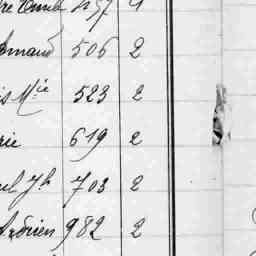 506 2
is Mie 523 2
rie 619 2
el Jh 703 2
Adrien 982 2